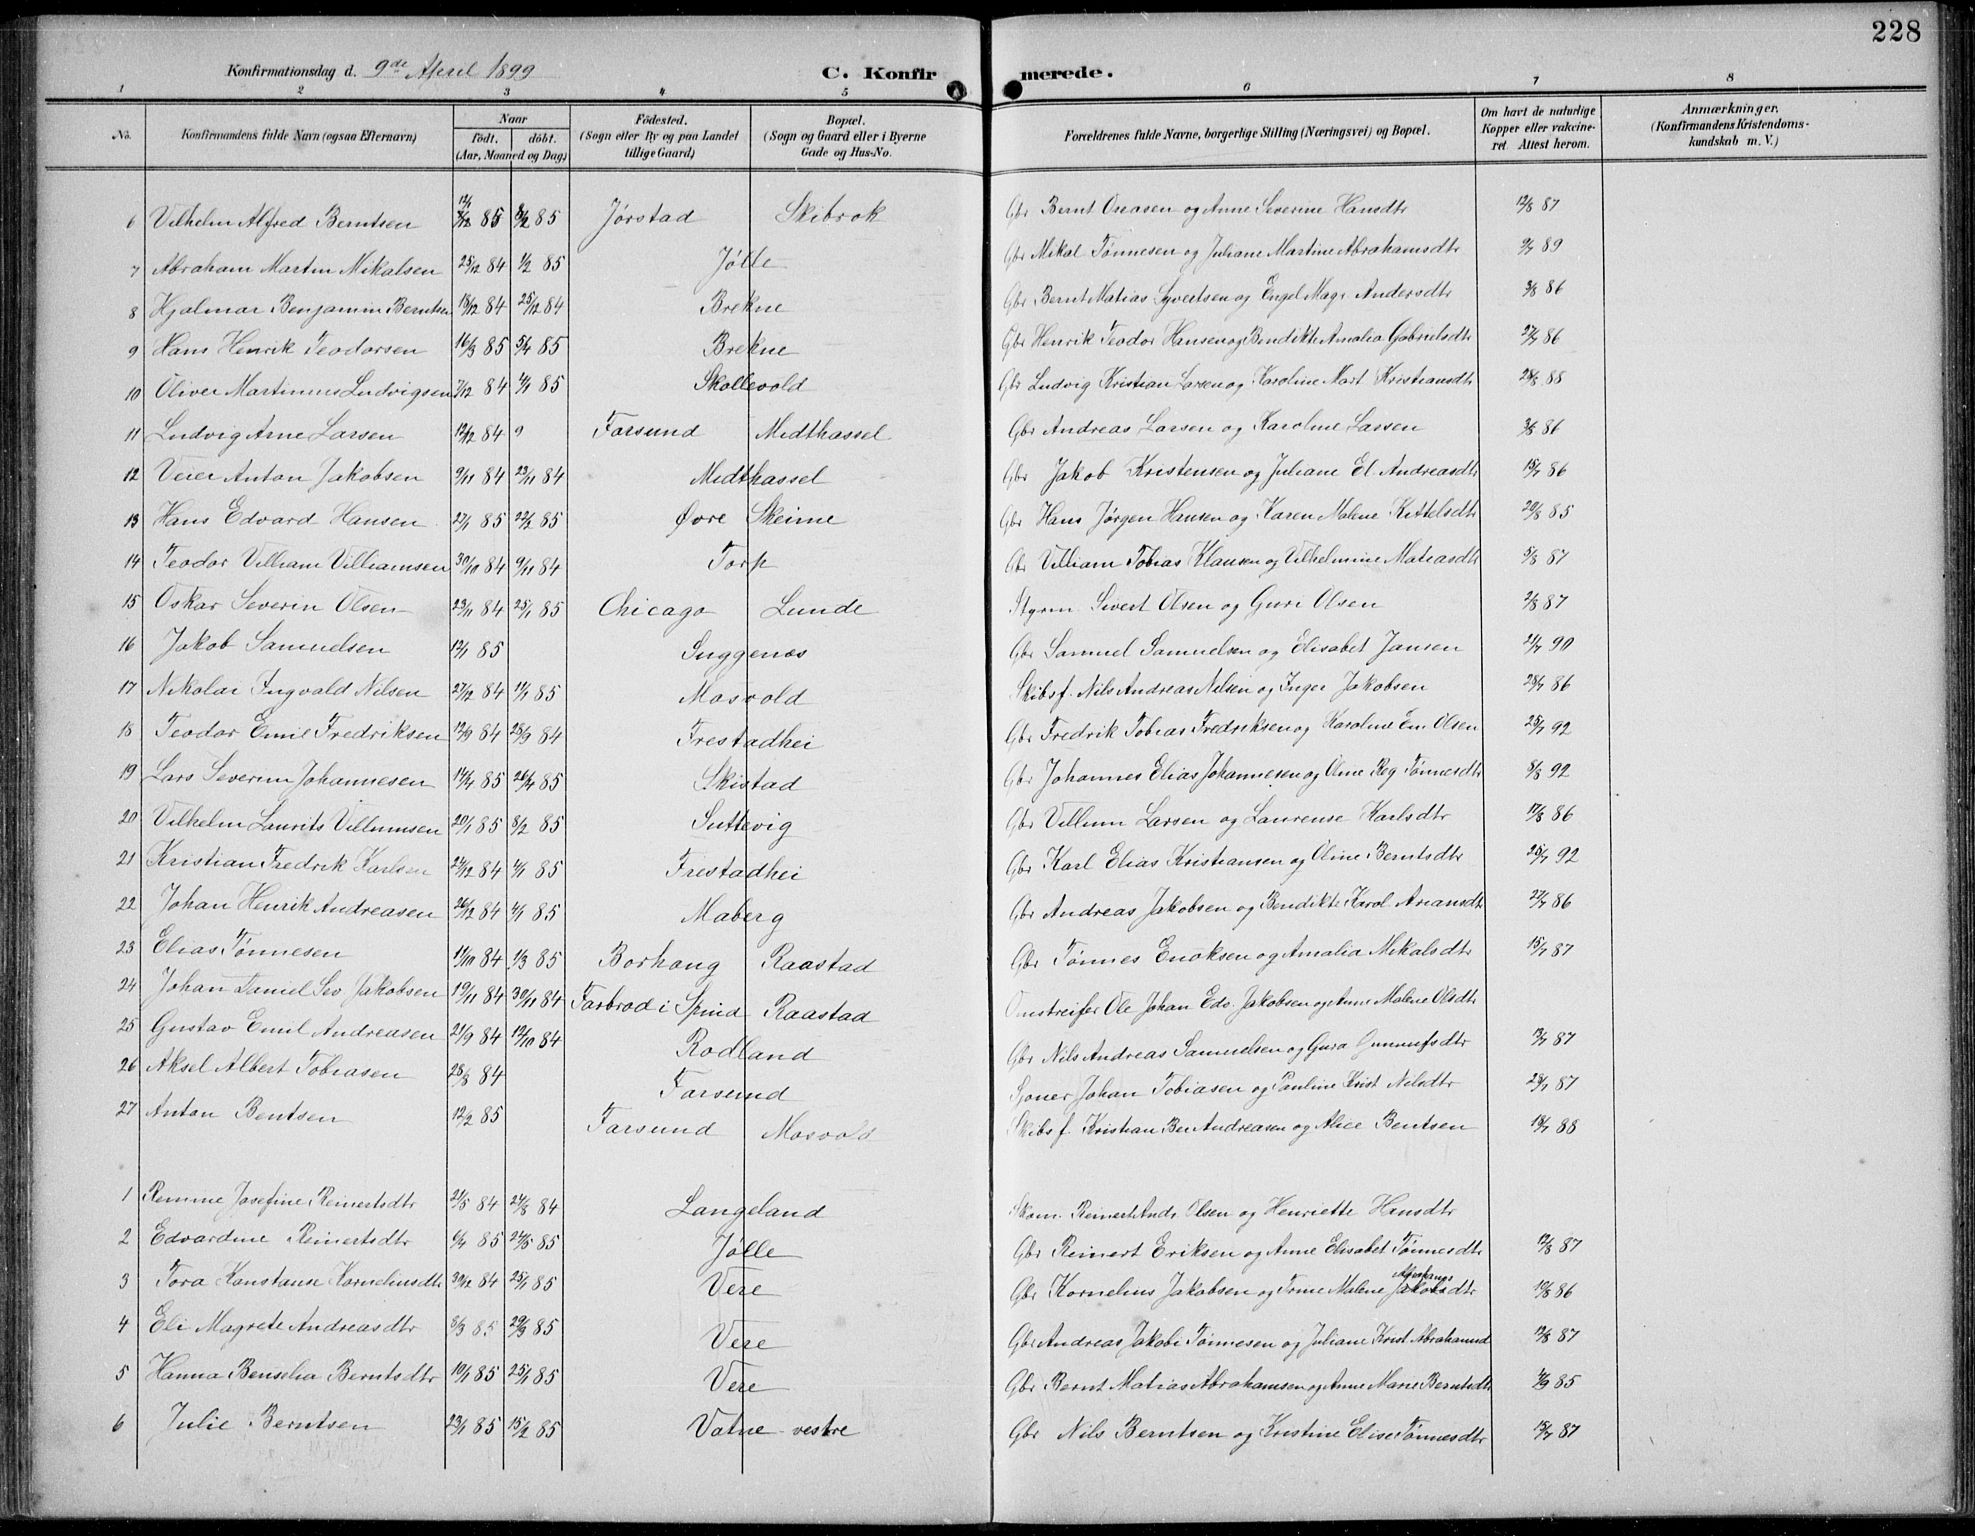 228
Konfirmationsdag d. 9de April 1899 C. Konfirmerede.
1 2 3 4 5 6 7 8
No. Konfirmandens fulde Navn (ogsaa Efternavn) Naar født. døbt. (Aar, Maaned og Dag) Fødested. (Sogn eller By og paa Landet tillige Gaard) Bopæl. (Sogn og Gaard eller i Byerne Gade og Hus-No. Forældrenes fulde Navne, borgerlige Stilling (Næringsvei) og Bopæl. Om havt de naturlige Kopper eller vakcineret. Attest herom. Anmærkninger. (Konfirmandens Kristendomskundskab m. V.)
6 Vilhelm Alfred Berntsen 85 8/2 85 Jørstad Skibrok Gbr Bernt Oreasen og Anne Severine Hansdtr 12/8 87
7 Abraham Martin Mikalsen 25/12 84 1/2 85 Jølle Gbr Mikal Tønnesen og Juliane Martine Abrahamsdtr 9/7 89
8 Hjalmar Benjamin Berntsen 18/12 84 25/12 84 Brekne Gbr Bernt Matias Syvertsen og Engel Mags Andersdtr 3/8 86
9 Hans Henrik Teodorsen 16/3 85 5/4 85 Brekne Gbr Henrik Teodor Hansen og Bendikte Amalia Gabrielsdtr 27/7 86
10 Oliver Martinius Ludvigsen 7/12 84 4/1 85 Skollevold Gbr Ludvig Kristian Larsen og Karoline Mart Kristiansdtr 28/8 88
11 Ludvig Arne Larsen 12/12 84 9 Farsund Midthassel Gbr Andreas Larsen og Karoline Larsen 3/8 86
12 Veier Anton Jakobsen 9/11 84 23/11 84 Midthassel Gbr Jakob Kristensen og Juliane El. Andreasdtr 15/7 86
13 Hans Edvard Hansen 27/1 85 22/2 85 Øvre Skeime Gbr Hans Jørgen Hansen og Karen Malene Kittelsdtr 20/8 85
14 Teodor Villiam Villiamsen 30/10 84 9/11 84 Torp Gbr Villiam Tobias Klausen og Vilhelmine Matiasdtr 5/8 87
15 Oskar Severin Olsen 23/11 84 25/1 85 Chicago Lunde Styrm Sivert Olsen og Guri Olsen 2/8 87
16 Jakob Samuelsen 12/1 85 Snggenæs Gbr Samuel Samuelsen og Elisabet Jansen 21/7 90
17 Nikolai Ingvald Nilsen 27/12 84 11/1 85 Mosvold Skibsf. Nils Andreas Nilsen og Inger Jakobsen 28/7 86
18 Teodor Emil Fredriksen 12/9 84 28/9 84 Frestadhei Gbr Fredrik Tobias Fredriksen og Karoline Em Olsen 25/7 92
19 Lars Severin Johannesen 14/4 85 26/4 85 Skistad Gbr Johannes Elias Johannesen og Oline Reg Tønnesdtr 8/8 92
20 Vilhelm Laurits Villumsen 20/1 85 8/2 85 Suttevig Gbr Villum Larsen og Laurense Karlsdtr 17/8 86
21 Kristian Fredrik Karlsen 24/12 84 4/1 85 Frestadhei Gbr Karl Elias Kristiansen og Oline Berntsdtr 25/7 92
22 Johan Henrik Andreasen 26/12 84 4/1 85 Maberg Gbr Andreas Jakobsen og Bendikte Karol Ariansdtr 27/7 86
23 Elias Tønnesen 11/10 84 1/3 85 Borhaug Raastad Gbr Tønnes Enoksen og Amalia Mikalsdtr 15/7 87
24 Johan Daniel Sev Jakobsen 19/11 84 30/11 84 Farbrod i Spind Raastad Omstreifer Ole Johan Edv. Jakobsen og Anne Malene Olsdtr
25 Gustav Emil Andreasen 21/9 84 12/10 84 Rodland Gbr Nils Andreas Samuelsen og Gura Gunnufsdtr 13/7 87
26 Aksel Albert Tobiasen 25/8 84 Farsund Johan Tobiasen og Pauline Krist Nilsdtr 23/7 87
27 Anton Bentsen 12/2 85 Farsund Mosvold Skibsf. Kristian Ber Andreasen og Alice Bentsen 18/7 88
1 Remme Josefine Reinertsdtr 21/5 84 24/8 84 Langeland Skom. Reinert Andr Olsen og Henriette Hansdtr
2 Edvardine Reinertsdtr 6/4 85 24/5 85 Jølle Gbr Reinert Eriksen og Anne Elisabet Tønnesdtr 12/8 87
3 Tora Konstanse Korneliusdtr 30/12 84 25/1 85 Vere Gbr Kornelius Jakobsen og Trine Malene Jakobsdtr 10/8 86
4 Eli Magrete Andreasdtr 8/3 85 29/3 85 Vere Gbr Andreas Jakobi Tønnesen og Juliane Krist Abrahamsd 12/8 87
5 Hanna Benselia Berntsdtr 10/1 85 25/1 85 Vere Gbr Bernt Matias Abrahamsen og Anne Marie Berntsdtr 4/9 85
6 Julie Berntsen 23/1 85 15/2 85 Vatne vestre Gbr Nils Berntsen og Kristine Elise Tønnesdtr 15/7 87